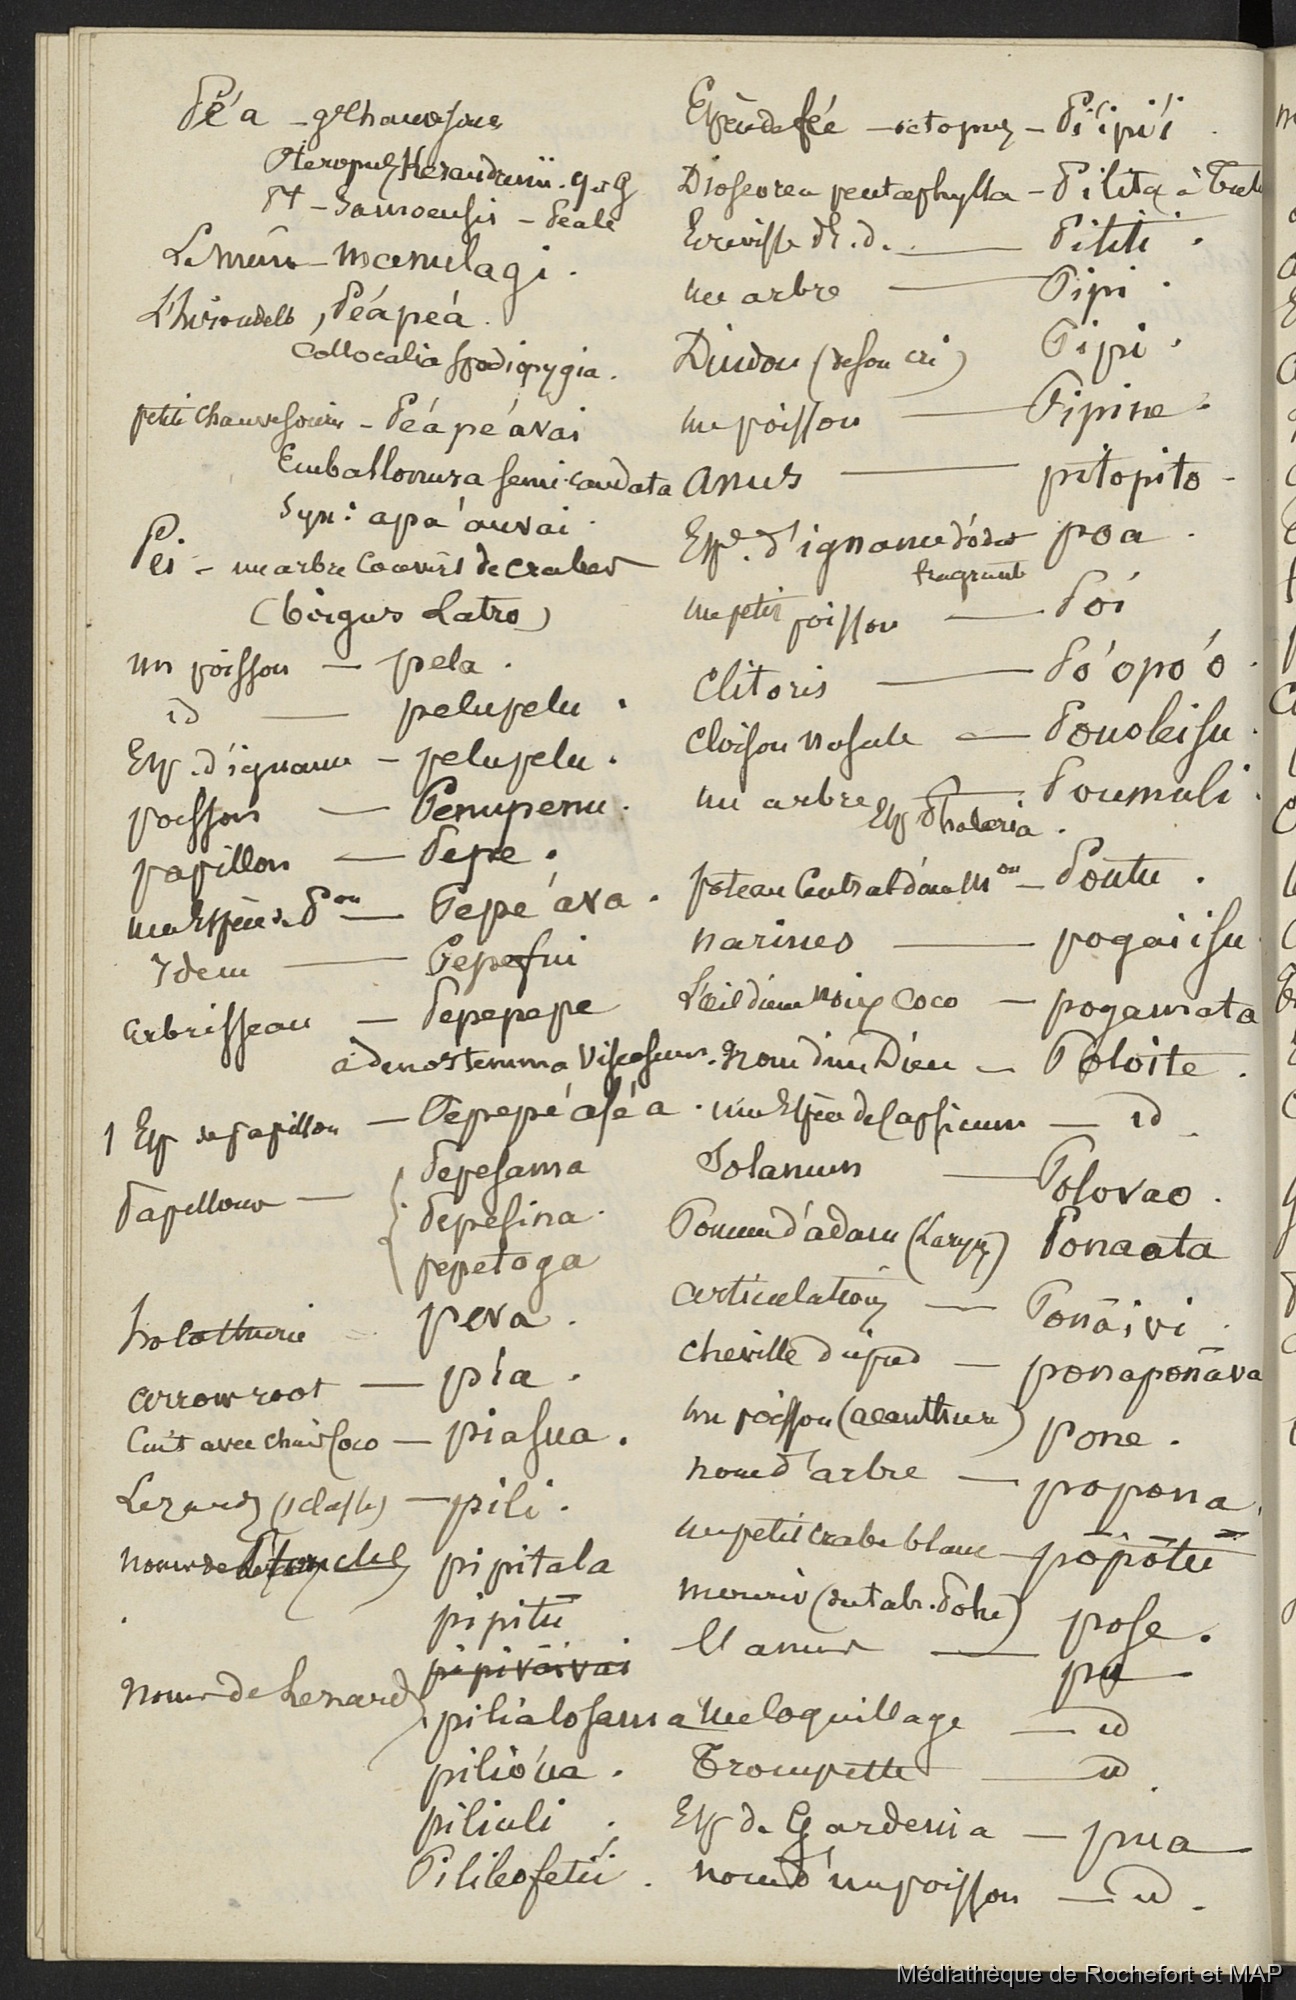 Pé'a – gde chauvesouris
Pteropus Keraudrenii. q et G
Pt – Samoensis – Peale
Le mien – manulagi .
L'hirondelle, Péápeá .
Collocalia spodiopygia .
petite chauvesouris – Péápé'avai
Emballonura semicaudata
Syn: apa'auvai .
Pei – un arbre couvert de crabes
(birgus Latro)
un poisson – pela .
id — pelupelu .
Esp. d'igname – pelupelu .
poisson — Penupenu .
papillon — Pepe .
une Espèce de Pon — Pepe'ava .
Idem — Pepefui
Arbrisseau – Pepepepe
adenostemma Viscosum .
1 Esp de papillon – Pepepé'afé'a .
Papillons — Pepesama
Pepesina .
pepetoga
holothurie – peva .
arrowroot — pia .
Cuit avec chair Coco – piasua .
Lezards (1 classe) – pili .
noms de pipitala
pipitū
pipivaivai
noms de Lezards pilialosama
pilio'ua .
piliuli .
Pilikofetū .
Espèce de fée – octopus – Pi'ipi'i .
Dioscorea pentaphylla – Pilita à Tuli
Ecrevisse d'E. d. — Pititi .
un arbre — Pipi .
Dindon (de son cri) Pipi .
un poisson — Pipine .
anus — pitopito –
Espe. d'igname d'odeur poa .
fragrante
un petit poisson — Poi
clitoris — Po'opo'o .
cloison nasale — Pouoleisu .
un arbre — Poumuli .
Esp Thaleria .
poteau Central d'une Mon – Poutu .
narines — pogaiisu
L'œil d'une noix Coco — pogamata
Nom d'un Dieu – Poloite .
une Espèce de Capsicum — id
Solanum — Polovao .
Pomme d'adam (Larynx) Ponaata
articulations — Ponāivi .
cheville du pied — ponaponāva
un poisson (acanthure) pone .
nom d'arbre — popona .
un petit crabe blanc – pōpōtū
mourir (du tabr. Pohe) pose .
L'anus — pu
une loquillage — id
Trompette — id .
Esp de Gardenia — pua
nom d'un poisson — id .
Médiathèque de Rochefort et MAP